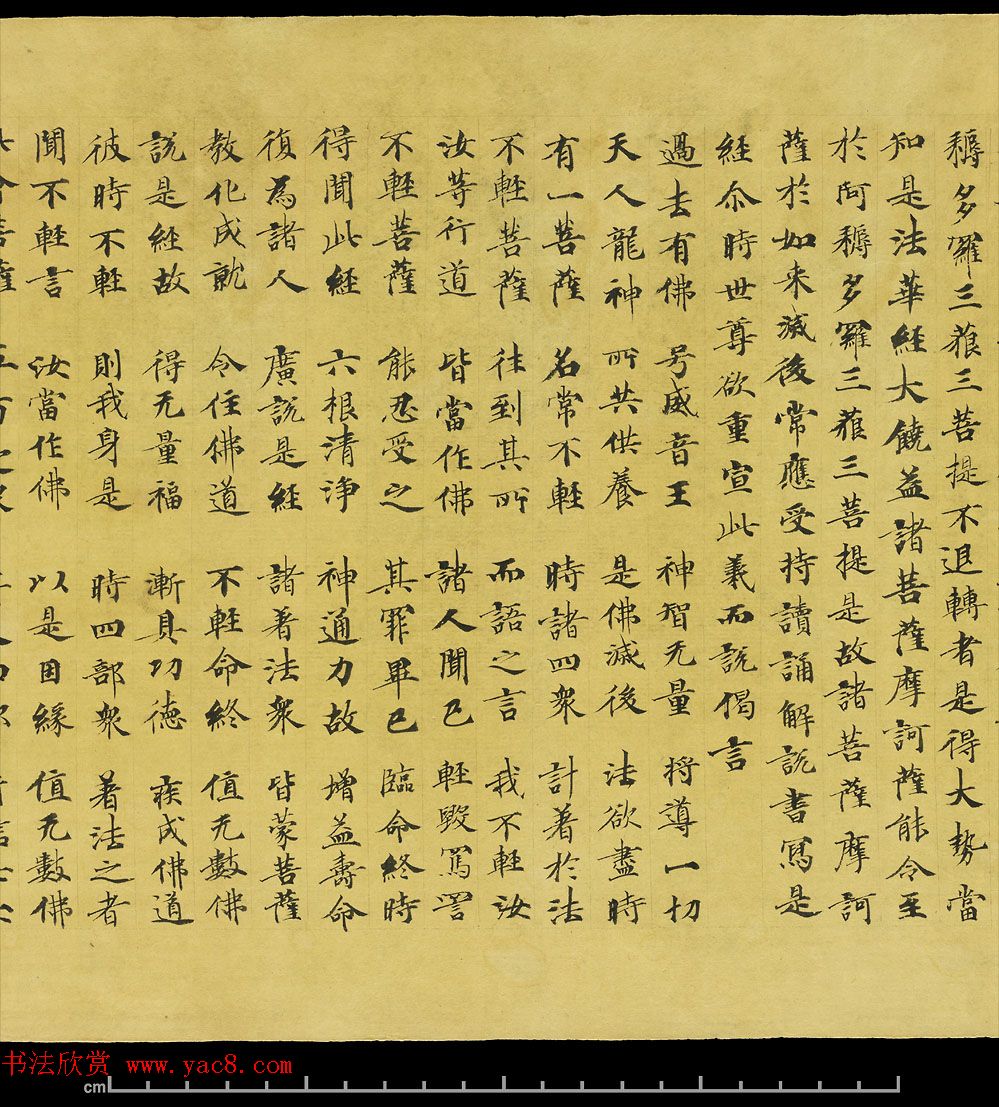 耨多羅三藐三菩提不退轉者是得大勢當
知是法華經大饒益諸菩薩摩訶薩能令至
於阿耨多羅三藐三菩提是故諸菩薩摩訶
薩於如来滅後常應受持讀誦解説書寫是
經尒時世尊欲重宣此義而説偈言
過去有佛 号威音王 神智无量 将導一切
天人龍神 所共供養 是佛滅後 法欲盡時
有一菩薩 名常不輕 時諸四衆 計著於法
不輕菩薩 往到其所 而語之言 我不輕汝
汝等行道 皆當作佛 諸人聞已 輕毀罵詈
不輕菩薩 能忍受之 其罪畢已 臨命終時
得聞此經 六根清淨 神通力故 增益壽命
復為諸人 廣説是經 諸著法衆 皆蒙菩薩
教化成就 令住佛道 不輕命終 值无數佛
説是經故 得无量福 漸具功德 疾成佛道
彼時不輕 則我身是 時四部衆 著法之者
聞不輕言 汝當作佛 以是因緣 值无數佛
书法欣赏 www.yac8.com
cm